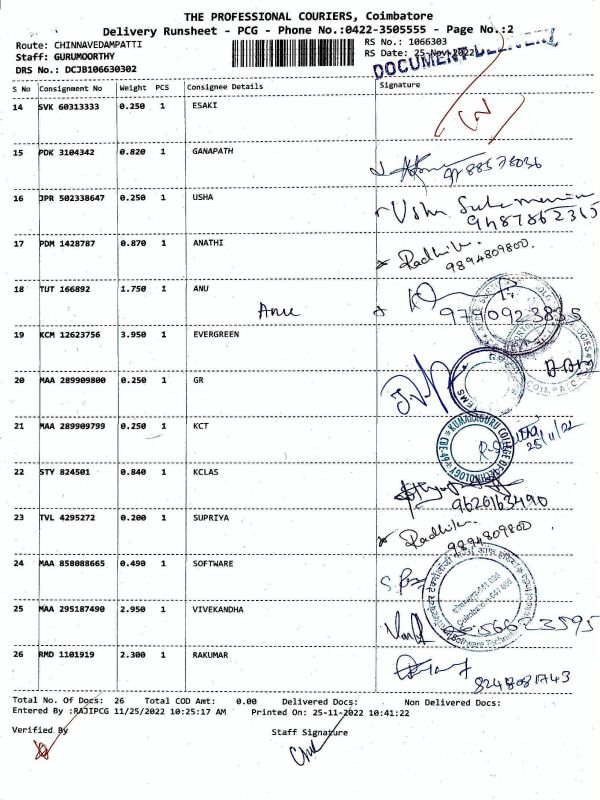 THE PROFESSIONAL COURIERS, Coimbatore
Delivery Runsheet - PCG - Phone No.:0422-3505555 - Page No.:2
Route: CHINNAVEDAMPATTI
RS No.: 1066303
Staff: GURUMOORTHY
RS Date: 25-Nov-2022
DRS No.: DCJB106630302
DOCUMENT DELIVERY
S No Consignment No Weight PCS Consignee Details Signature
14 SVK 60313333 0.250 1 ESAKI
15 PDK 3104342 0.820 1 GANAPATH
16 JPR 502338647 0.250 1 USHA
9487862315
17 PDM 1428787 0.870 1 ANATHI Radhika
9894809800.
18 TUT 166892 1.750 1 ANU
Anu 9790923835
19 KCM 12623756 3.950 1 EVERGREEN
20 MAA 289909800 0.250 1 GR
21 MAA 289909799 0.250 1 KCT
KUMARAGURU COLLEGE OF TECHNOLOGY
25/11/22
22 STY 824501 0.840 1 KCLAS
9626163490
23 TVL 4295272 0.200 1 SUPRIYA Radhika
9894809800
24 MAA 858088665 0.490 1 SOFTWARE
25 MAA 295187490 2.950 1 VIVEKANDHA
26 RMD 1101919 2.300 1 RAKUMAR
8248081743
Total No. Of Docs: 26 Total COD Amt: 0.00 Delivered Docs: Non Delivered Docs:
Entered By :RAJIPCG 11/25/2022 10:25:17 AM Printed On: 25-11-2022 10:41:22
Verified By
Staff Signature